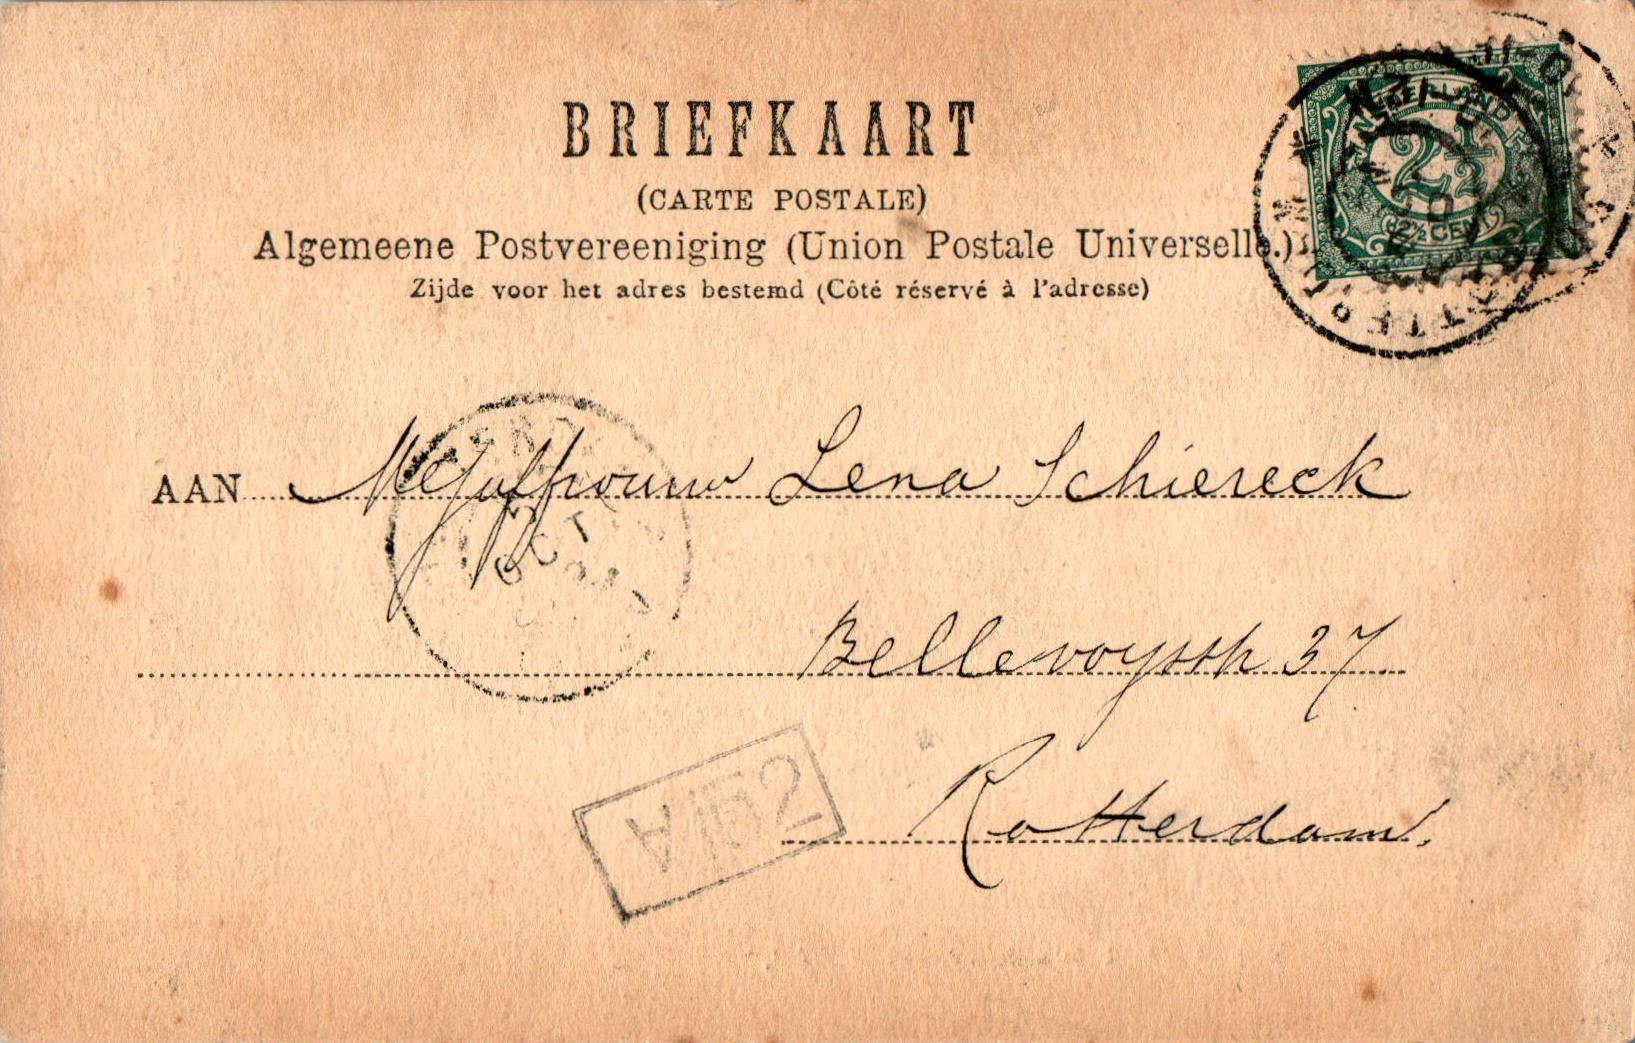 BRIEFKAART
(CARTE POSTALE)
Algemeene Postvereeniging (Union Postale Universelle.)
Zijde voor het adres bestemd (Côté réservé à l'adresse)
NEDERLAND
2½
2½ CENT
AAN Mejuffrouw Lena Schiereck
OCT
Bellevoysstr 37
Rotterdam.